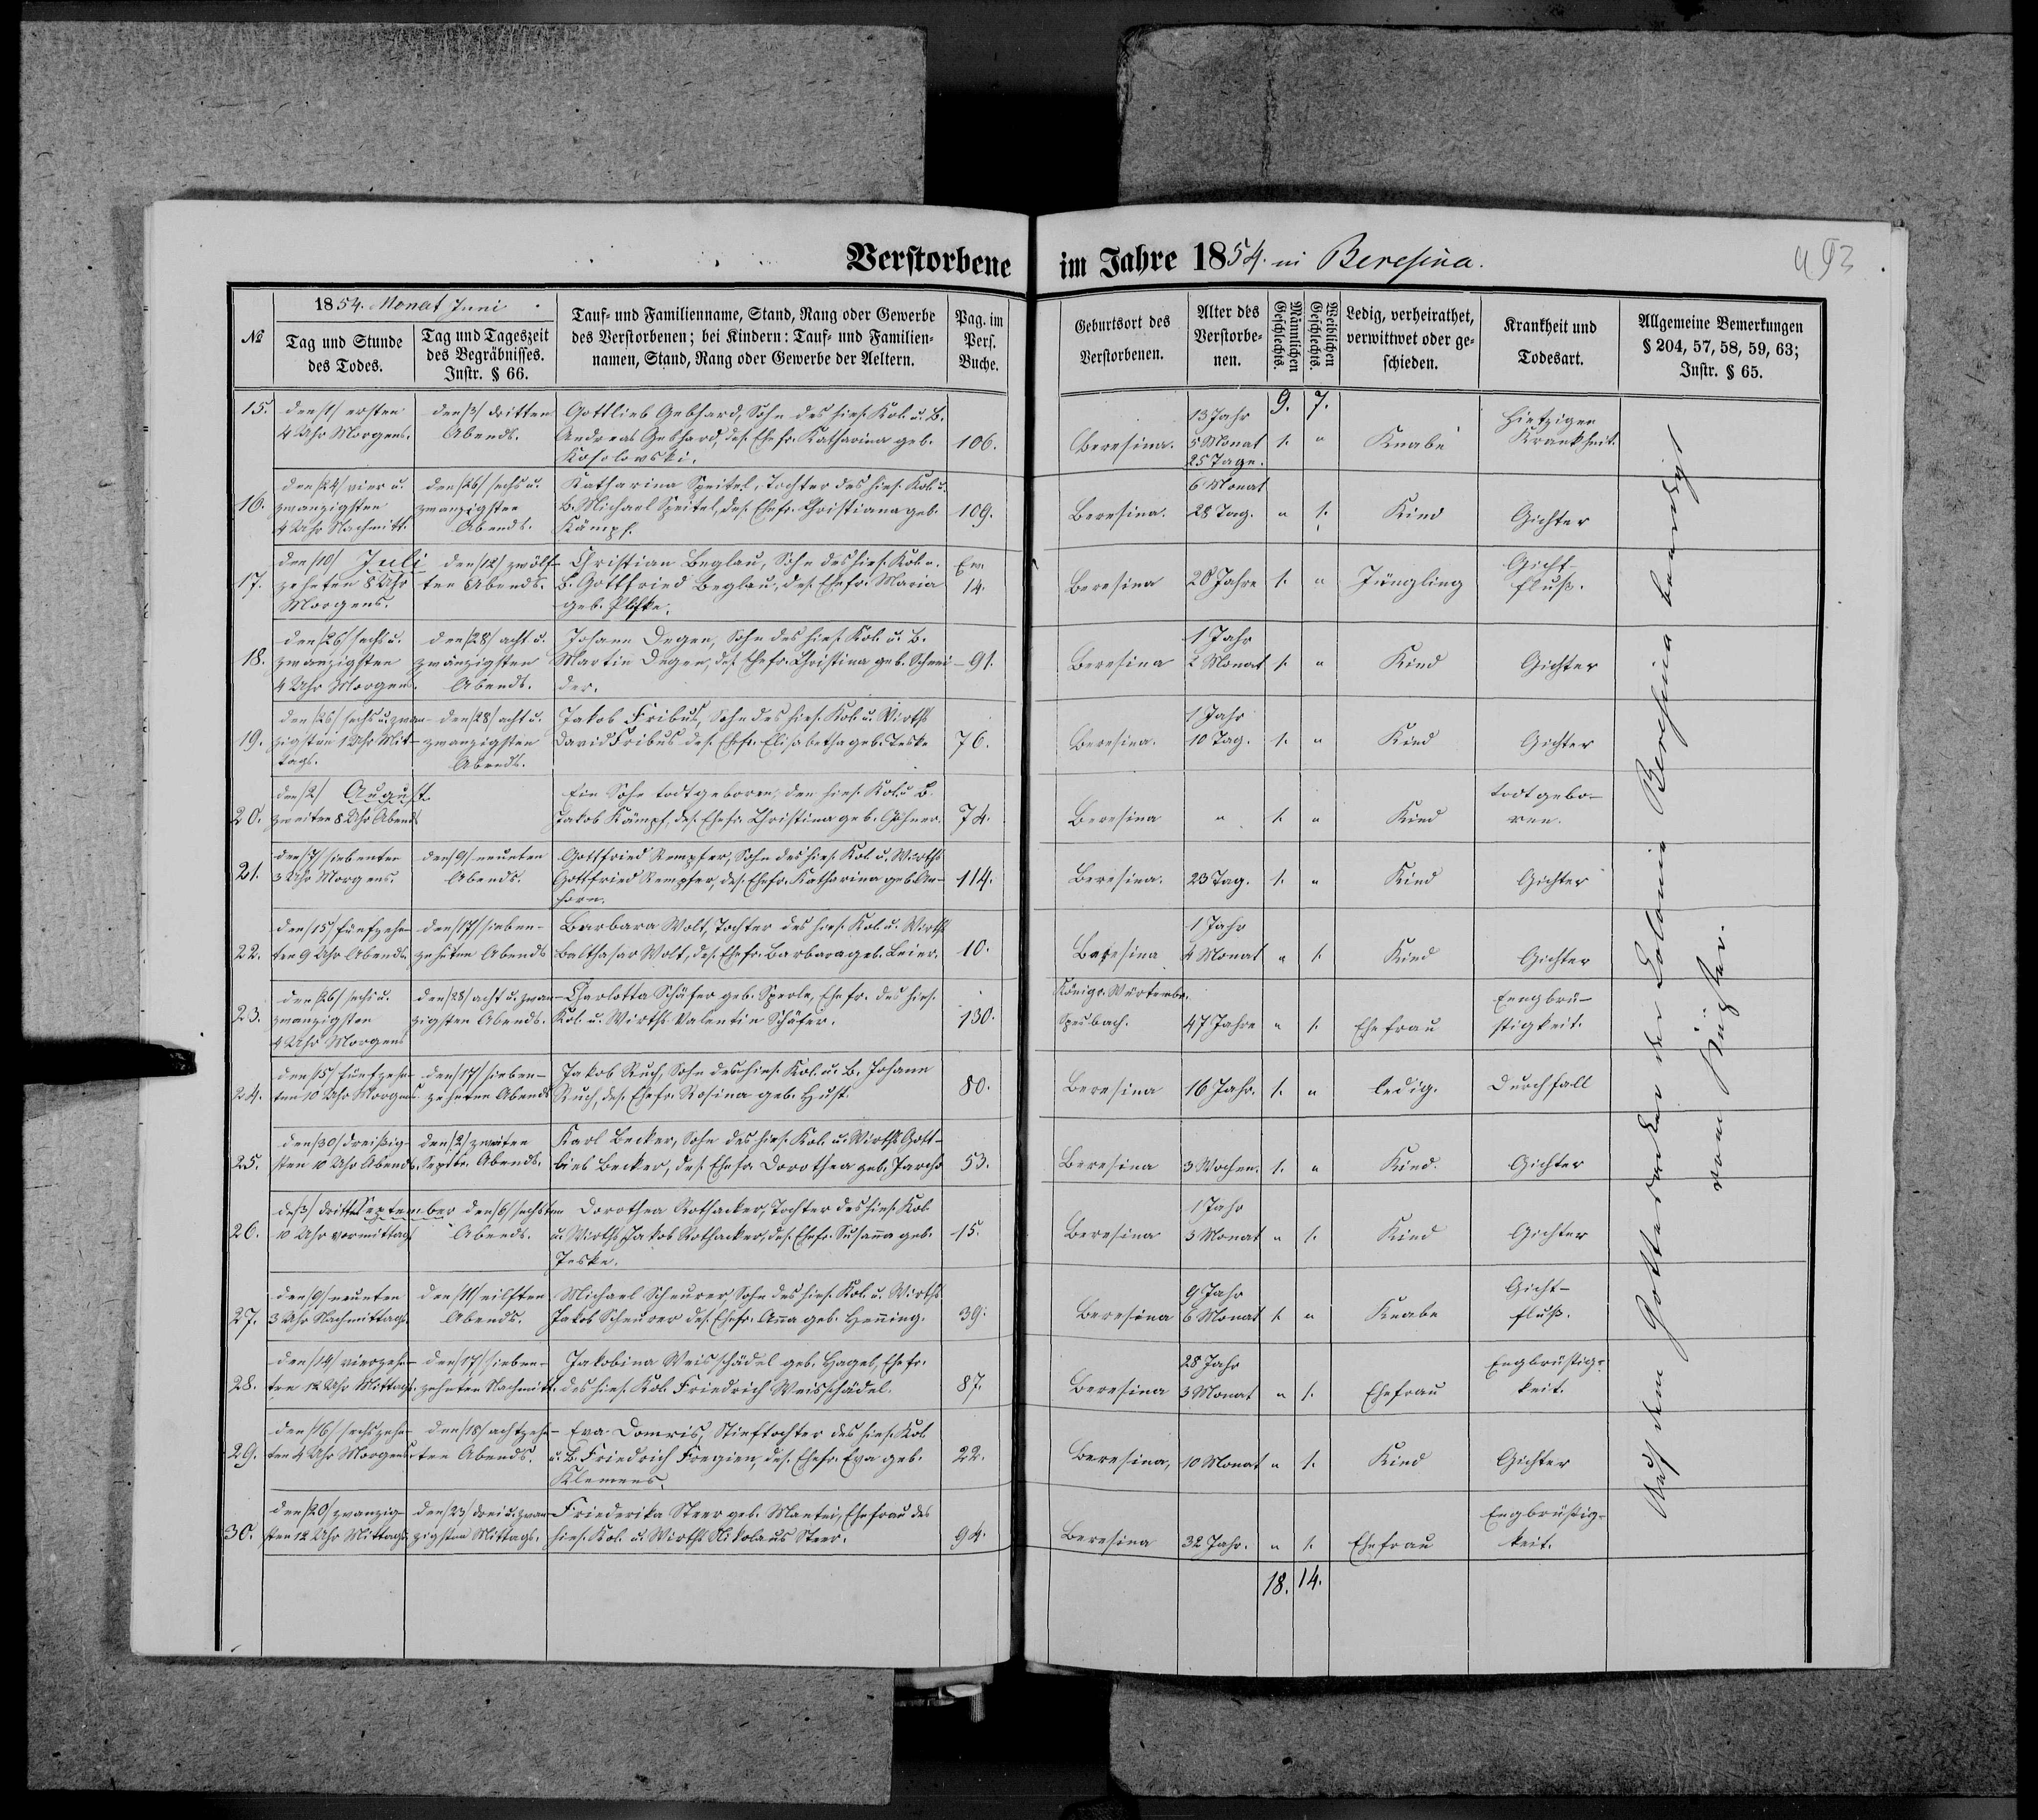 Verstorbene im Jahre 1854. in Beresina.
1854. Monat Juni
№
Tag und Stunde
des Todes.
Tag und Tageszeit
des Begräbnisses.
Instr. § 66.
Tauf- und Familienname, Stand, Rang oder Gewerbe
des Verstorbenen; bei Kindern: Tauf- und Familien-
namen, Stand, Rang oder Gewerbe der Aeltern.
Pag. im
Pers.
Buche.
Geburtsort des
Verstorbenen.
Alter des
Verstorbe-
nen.
Männlichen
Geschlechts.
Weiblichen
Geschlechts.
Ledig, verheirathet,
verwittwet oder ge-
schieden.
Krankheit und
Todesart.
Allgemeine Bemerkungen
§ 204, 57, 58, 59, 63;
Instr. § 65.
9. 7.
15.
den /1/ ersten
4 Uhr Morgens.
den /3/ dritten
Abends.
Gottlieb Gebhard, Sohn des hies. Kol. u. B.
Andreas Gebhard, des. Ehefr. Katharina geb.
Kosolowski.
106.
Beresina.
13 Jahr
5 Monat
25 Tage.
1. "
Knabe
Hietziger
Krankheit.
16.
den /24/ vier u.
zwanzigsten
4 Uhr Nachmitt.
den /26/ sechs u.
zwanzigsten
Abends.
Katharina Speitel, Tochter des hies. Kol. u.
B. Michael Speitel, des. Ehefr. Christiana geb.
Kämpf.
109.
Beresina.
6 Monat
28 Tag.
" 1.
Kind
Gichter
17.
den /10/ Juli
zehnten 8 Uhr
Morgens.
den /12/ zwölf-
ten Abends.
Christian Beglau, Sohn des hies. Kol. u.
B. Gottfried Beglau, des. Ehefr. Maria
geb.
14.
Beresina
20 Jahre
1. "
Jüngling
Gicht-
fluß.
18.
den /26/ sechs u.
zwanzigsten
4 Uhr Morgens.
den /28/ acht u.
zwanzigsten
Abends.
Johann Degen, Sohn des hies. Kol. u. B.
Martin Degen, des. Ehefr. Christina geb. Schnei-
der.
91.
Beresina
1 Jahr
2 Monat
1. "
Kind
Gichter
19.
den /26/ sechs u. zwan-
zigsten 1 Uhr Mit-
tags.
den /28/ acht u.
zwanzigsten
Abends.
Jakob Fribus, Sohn des hies. Kol. u. Wirths
David Fribus des. Ehefr. Elisabetha geb. Teske
76.
Beresina.
1 Jahr
10 Tag.
1. "
Kind
Gichter
20.
den /2/ August
zweiten 8 Uhr Abend
Ein Sohn todtgeboren, den hies. Kol. u. B.
Jakob Kämpf, des. Ehefr. Christina geb. Göhner.
74.
Beresina
" 1. "
Kind
todtgebo-
ren.
21.
den /7/ siebenten
3 Uhr Morgens.
den /9/ neunten
Abends.
Gottfried Rempfer, Sohn des hies. Kol. u. Wirths
Gottfried Rempfer, des. Ehefr. Katharina geb. An-
horn.
114.
Beresina.
23 Tag.
1. "
Kind
Gichter
22.
den /15/ fünfzehn-
ten 9 Uhr Abends.
den /17/ sieben-
zehnten Abends
Barbara Wolt, Tochter des hies. Kol. u. Wirths
Balthasar Wolt, des. Ehefr. Barbara geb. Beier.
10.
Beresina
1 Jahr
4 Monat
" 1.
Kind
Gichter
23.
den /26/ sechs u.
zwanzigsten
4 Uhr Morgens
den /28/ acht u. zwan-
zigsten Abends.
Charlotta Schäfer geb. Sperle, Ehefr. des hies.
Kol. u. Wirths Valentin Schäfer.
130.
Königr. Würtembr.
47 Jahre
" 1.
Ehefrau
Eengbrü-
stigkeit.
24.
den /15/ fünfzehn-
ten 10 Uhr Morgens
den /17/ sieben-
zehnten Abend
Jakob Ruch, Sohn des hies. Kol. u. B. Johann
Ruch, des. Ehefr. Rosina geb. Hust.
80.
Beresina
16 Jahr.
1. "
ledig.
Durchfall
25.
den /30/ dreißig-
sten 10 Uhr Abends.
den /2/ zweiten
Septbr. Abends.
Karl Becker, Sohn des hies. Kol. u. Wirths Gott-
lieb Becker, des. Ehefr. Dorothea geb. Jarcho
53.
Beresina
3 Wochen.
1. "
Kind.
Gichter
26.
den /3/ dritten September
10 Uhr vormittags
den /6/ sechsten
Abends.
Dorothea Rothacker, Tochter des hies. Kol.
u. Wirths Jakob Rothacker, des. Ehefr. Susanna geb.
Teske.
15.
Beresina
1 Jahr
3 Monat
" 1.
Kind
Gichter
27.
den /9/ neunten
3 Uhr Nachmittags.
den /11/ eilften
Abends.
Michael Scheurer Sohn des hies. Kol. u. Wirths
Jakob Scheurer des. Ehefr. Anna geb. Henning.
39.
Beresina
9 Jahr
6 Monat
1. "
Knabe
Gicht-
fluß.
28.
den /14/ vierzehn-
ten 12 Uhr Mittags.
den /17/ sieben-
zehnten Nachmitt.
Jakobina Weisschädel geb. Hagel, Ehefr.
des hies. Kol. Friedrich Weisschädel.
87.
Beresina
28 Jahr
3 Monat
" 1.
Ehefrau
Engbrüstig-
keit.
29.
den /16/ sechszehn-
ten 4 Uhr Morgens
den /18/ achtzehn-
ten Abends.
Eva Domris, Stieftochter des hies. Kol.
u. B. Friedrich Fregien, des. Ehefr. Eva geb.
Klemens.
22.
Beresina,
10 Monat
" 1.
Kind
Gichter
30.
den /20/ zwanzig-
sten 12 Uhr Mittags
den /23/ drei u. zwan-
zigsten Mittags.
Friederika Steer geb. Mantei, Ehefrau des
hies. Kol. u. Wirths Nikolaus Steer.
94.
Beresina
32 Jahr.
" 1.
Ehefrau
Engbrüstig-
keit.
18. 14.
Auf dem Gottesacker der Colonie Beresina beerdigt
vom Küster.